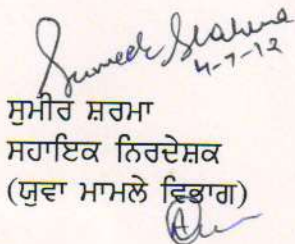 Sumeer Sharma
4-7-12
ਸੁਮੀਰ ਸ਼ਰਮਾ
ਸਹਾਇਕ ਨਿਰਦੇਸ਼ਕ
(ਯੁਵਾ ਮਾਮਲੇ ਵਿਭਾਗ)